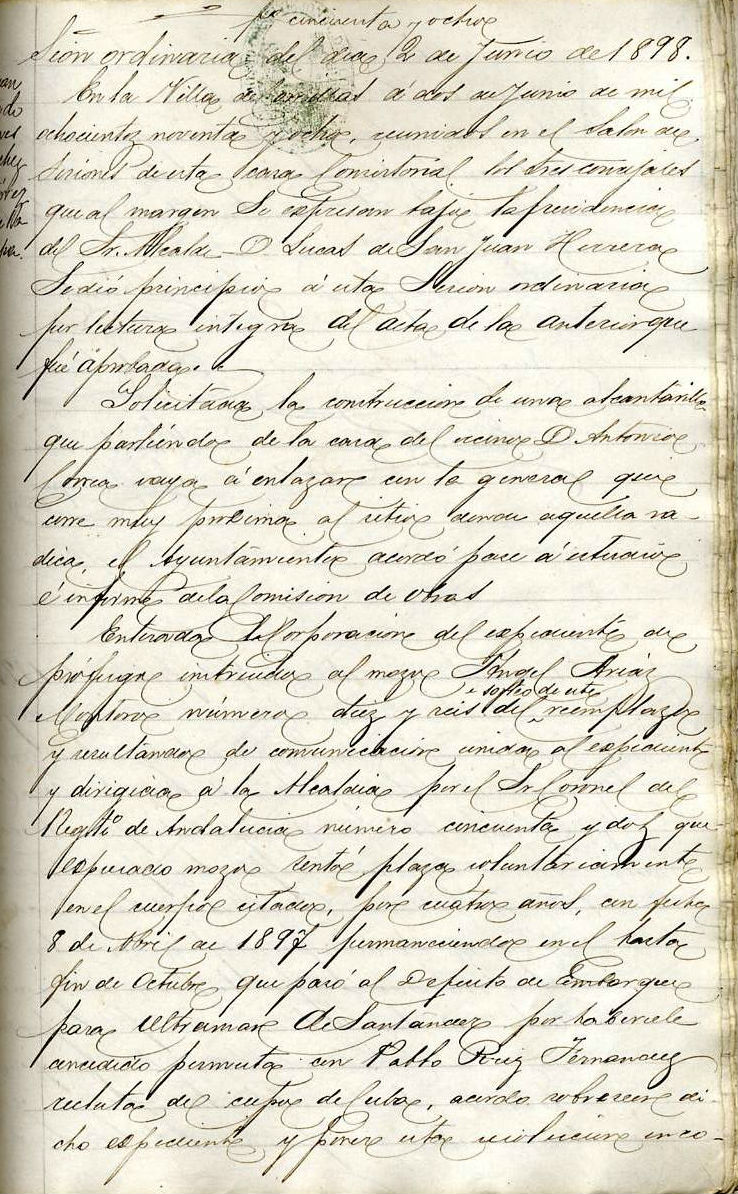 cincuenta y ocho
sión ordinaria del dia 2 de Junio de 1898.
En la Villa de Comillas á dos de Junio de mil
ochocientos noventa y ocho, reunidos en el Salon de
Sesiones de esta Casa Consistorial los tres concejales
que al margen se expresan bajo la presidencia
del Sr. Alcalde D Lucas de San Juan Herrera
Se dió principio á esta Sesion ordinaria
por lectura integra del acta de la anterior que
fué aprobada.
Solicitada la construccion de una alcantarilla
que partiendo de la casa del vecino D Antonio
Correa vaya á enlazar con la general que
corre muy proxima al sitio donde aquella ra-
dica, el Ayuntamiento acordó pase á estudio
é informe de la Comision de obras
Enterada la Corporacion del expediente de
prófugo instruido al mozo Angel Ariáz
é sorteo de este
Montoro número diez y seis del reemplazo
y resultando de comunicacion unida al expediente
y dirigida á la Alcaldia por el Sr Coronel del
Regtº de Andalucia número cincuenta y dos que
expresado mozo sentó plaza voluntariamente
en el cuerpo citado, por cuatro años, con fecha
8 de Abril de 1897 permaneciendo en el hasta
fin de Octubre que pasó al Depósito de Embarque
para Ultramar de Santander por habersele
concedido permuta con Pablo Ruiz Fernandez
recluta del cupo de Cuba, acordo sobreseer di-
cho expediente y poner esta resolucion en co-